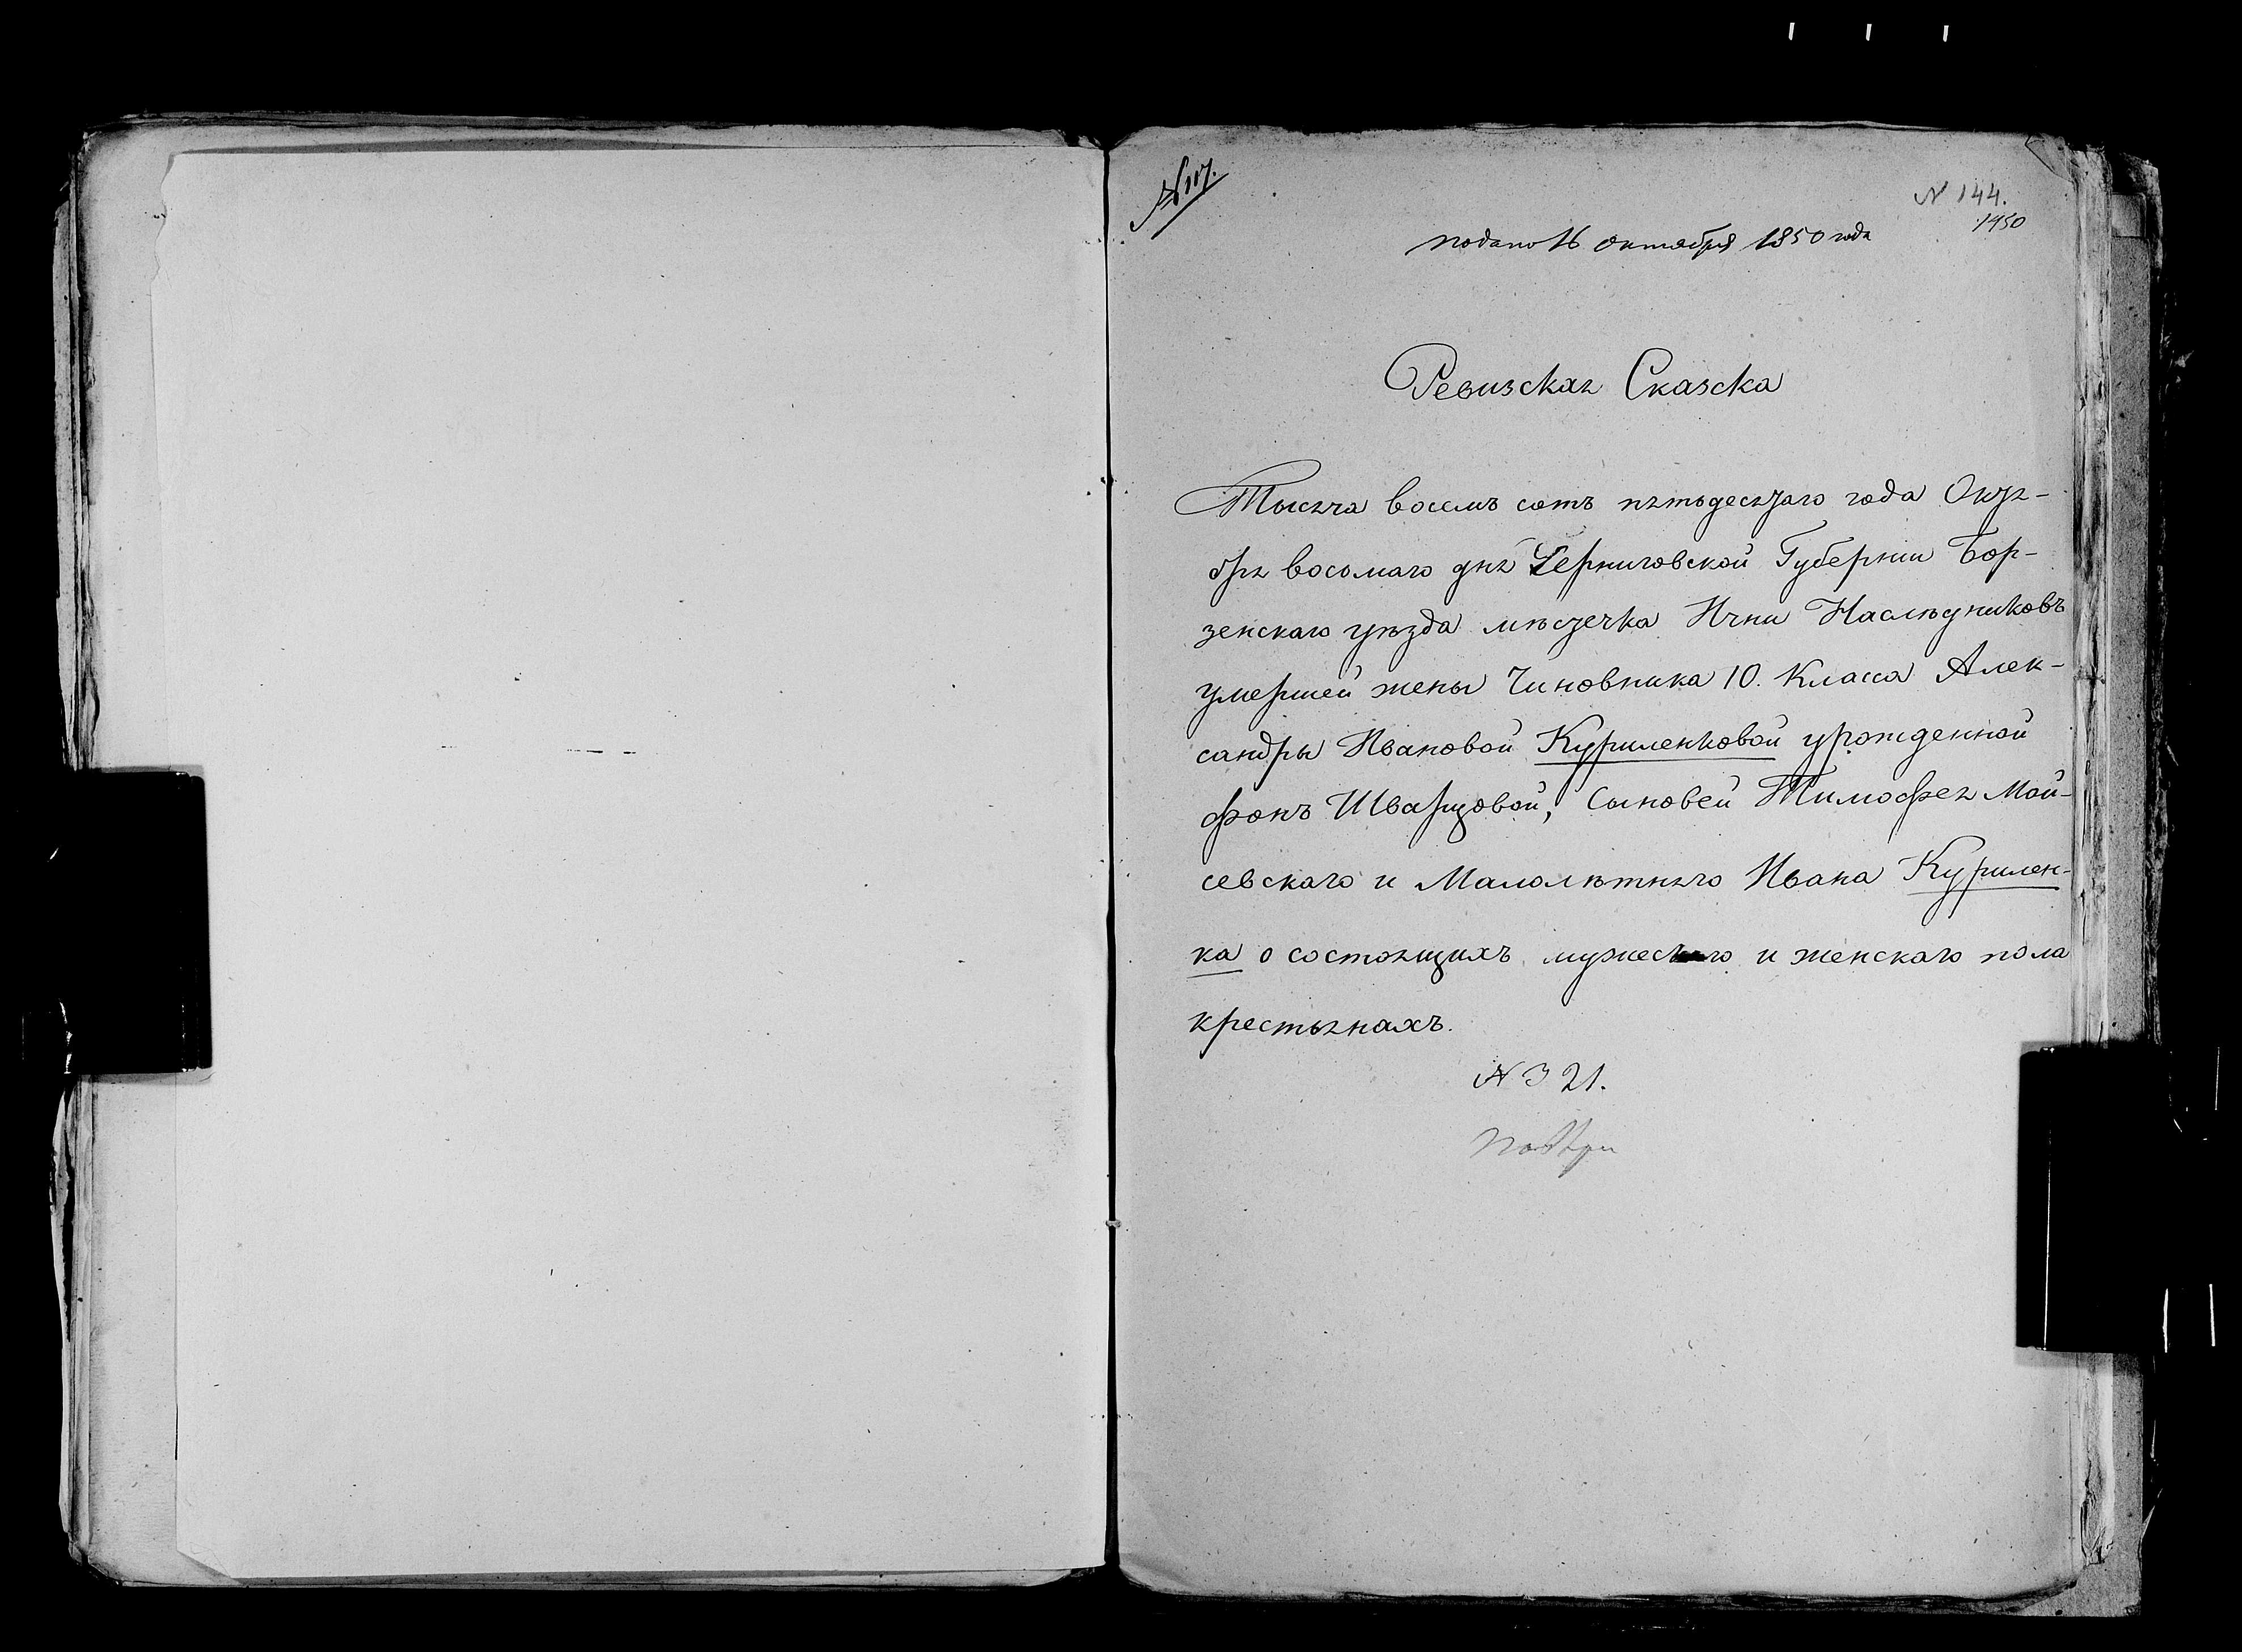 № 117.
N 144.
1450
подано 16 октября 1850 года
Ревизская Сказска
Тысяча восемъ сотъ пятьдесятаго года Октя-
бря восьмаго дня Черниговской Губернии Бор-
зенскаго уѣзда мѣстечка Ични Наслѣдниковъ
умершей жены Чиновника 10. Класса Алек-
сандры Ивановой Куриленковой урожденной
фонъ Шварцовой, Сыновей Тимофея Мои-
севскаго и Малолѣтняго Ивана Курилен-
ка о состоящихъ мужескаго и женскаго пола
крестьянахъ.
N 321.